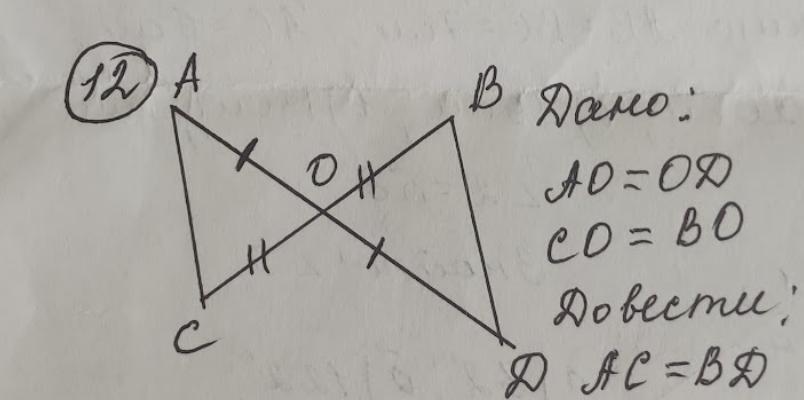 12
A
B
O
C
D
Дано:
AO = OD
CO = BO
Довести:
AC = BD